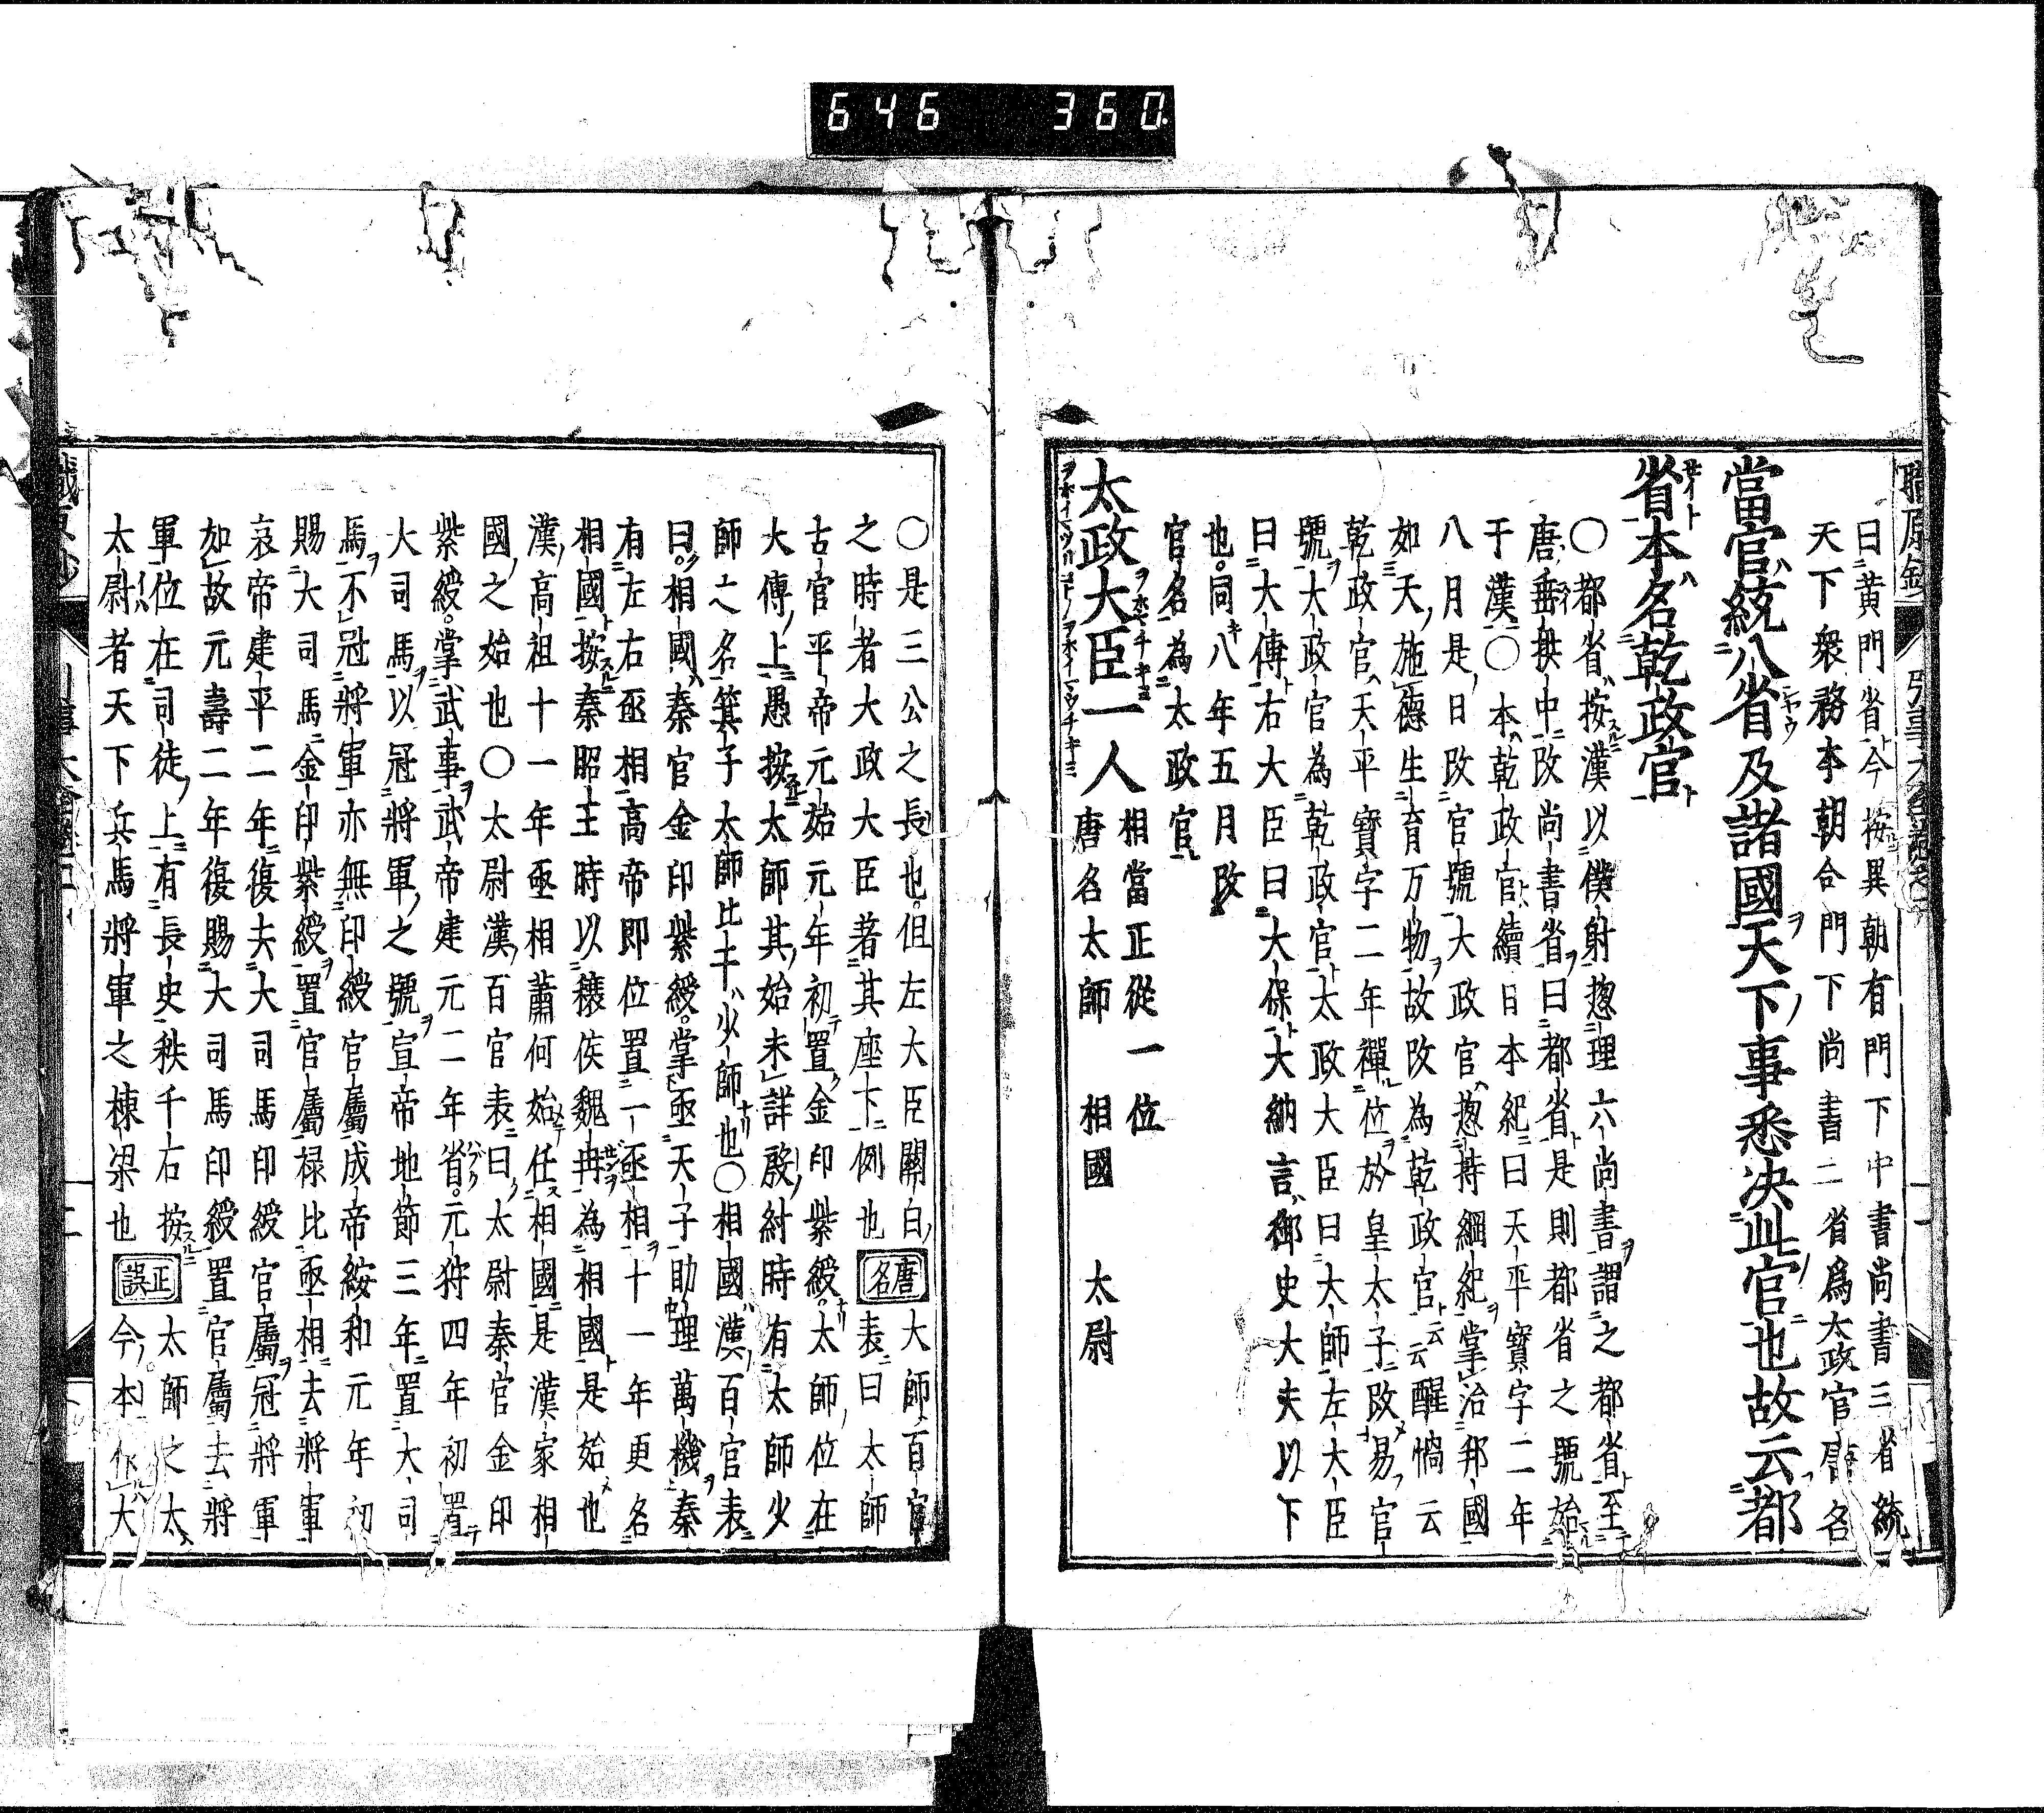 646 360
曰黄門省今按異朝有門下中書尚書三省統
天下衆務本朝合門下尚書二省爲太政官唐名
當官統八省及諸國天下事悉決此官也故云都
省本名乾政官
〇都省按漢以僕射揔理六尚書謂之都省至
唐垂拱中改尚書省曰都省是則都省之號始
于漢〇本乾政官續日本紀曰天平寳字二年
八月是日改官號大政官揔持綱紀掌治邦國
如天施德生育万物故改為乾政官云云醒悩云
乾政官天平寳字二年禪位於皇太子改易官
號大政官為乾政官太政大臣曰大師左大臣
曰大傳右大臣曰大保大納言御史大夫以下
也同八年五月改
官名為太政官
太政大臣一人
相當正從一位
唐名太師 相國 太尉
〇是三公之長也但左大臣關白
之時者大政大臣者其座下例也 唐名 大師百官
表曰太師
古官平帝元始元年初置金印紫綬太師位在
大傳上愚按太師其始未詳啟紂時有太師少
師之名箕子太師比干少師也〇相國漢百官表
曰相國秦官金印紫綬掌丞天子助理萬機秦
有左右丞相高帝即位置一丞相十一年更名
相國按秦昭王時以穰侯魏冉為相國是始也
漢高祖十一年丞相蕭何始任相國是漢家相
國之始也〇太尉漢百官表曰太尉秦官金印
紫綬掌武事武帝建元二年省元狩四年初置
大司馬以冠將軍之號宣帝地節三年置大司
馬不冠將軍亦無印綬官屬成帝綏和元年初
賜大司馬金印紫綬置官屬禄比丞相去將軍
哀帝建平二年復去大司馬印綬官屬冠將軍
如故元壽二年復賜大司馬印綬置官屬去將
軍位在司徒上有長史秩千石按太師之太
太尉者天下兵馬將軍之棟梁也 正誤 今本作大